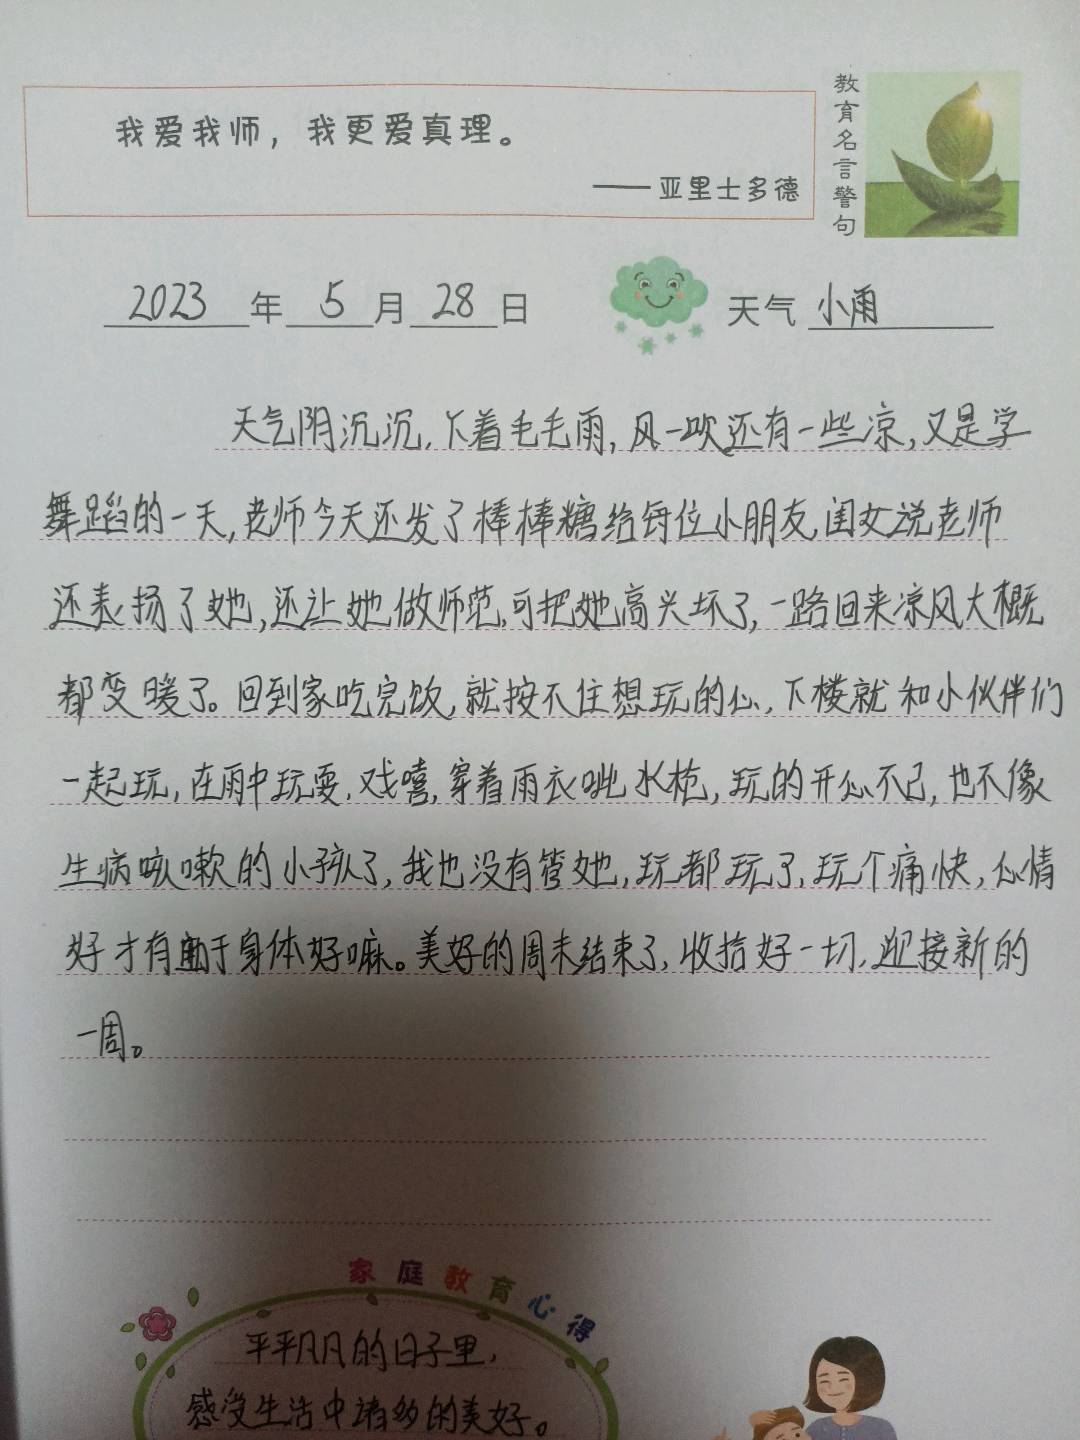 我爱我师，我更爱真理。
——亚里士多德
教育名言警句
2023年5月28日
天气 小雨
天气阴沉沉，下着毛毛雨，风一吹还有一些凉，又是学
舞蹈的一天，老师今天还发了棒棒糖给每位小朋友，闺女说老师
还表扬了她，还让她做师范，可把她高兴坏了，一路回来凉风大概
都变暖了。回到家吃完饭，就按不住想玩的心，下楼就和小伙伴们
一起玩，在雨中玩耍，戏嘻，穿着雨衣呲水枪，玩的开心不已，也不像
生病咳嗽的小孩了，我也没有管她，玩都玩了，玩个痛快，心情
好才有助于身体好嘛。美好的周末结束了，收拾好一切，迎接新的
一周。
家庭教育心得
平平凡凡的日子里，
感受生活中诸多的美好。